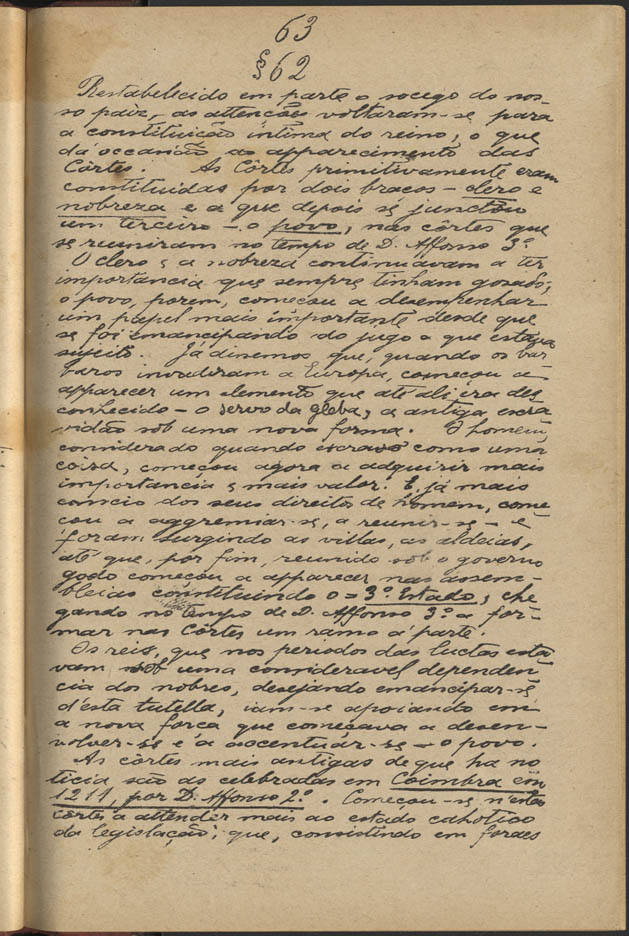 63
§62
Restabelecido em parte o socego do nos-
so paiz, as attenções voltaram-se para
a constituição intima do reino, o que
dá occasião ao apparecimento das
Côrtes. As Côrtes primitivamente eram
constituidas por dois braços - clero e
nobreza e a que depois se junctou
um terceiro - o povo, nas côrtes que
se reuniram no tempo de D. Affonso 3º
O clero e a nobreza continuavam a ter
importancia que sempre tinham gosado;
o povo, porem, começou a desempenhar
um papel mais importante desde que
se foi emancipando do jugo a que estava
sujeito. Já dissemos que, quando os bar
baros invadiram a Europa, começou a
apparecer um elemento que até ali era des
conhecido - o servo da gleba, a antiga escra
vidão sob uma nova forma. O homem,
considerado quando escravo como uma
coisa, começou agora a adquirir mais
importancia e mais valor. E, já mais
concio dos seus direitos de homem, come
çou a aggremiar-se, a reunir-se - e
foram surgindo as villas, as aldeias,
até que, por fim, reunido sob o governo
godo começou a apparecer nas assem-
bleias constituindo o = 3º. Estado, che
gando no tempo de D. Affonso 3º a for-
mar nas Côrtes um ramo á parte.
Os reis, que nos periodos das luctas esta
vam sob uma consideravel dependen
cia dos nobres, desejando emancipar-se
d'esta tutella, iam-se apoiando em
a nova força que começava a desen-
volver-se e a accentuár-se - o povo.
As côrtes mais antigas de que ha no
ticia são as celebradas em Coimbra em
1211, por D. Affonso 2º. Começou-se n'estas
côrtes a attender mais ao estado cahotico
da legislação; que, consistindo em foraes